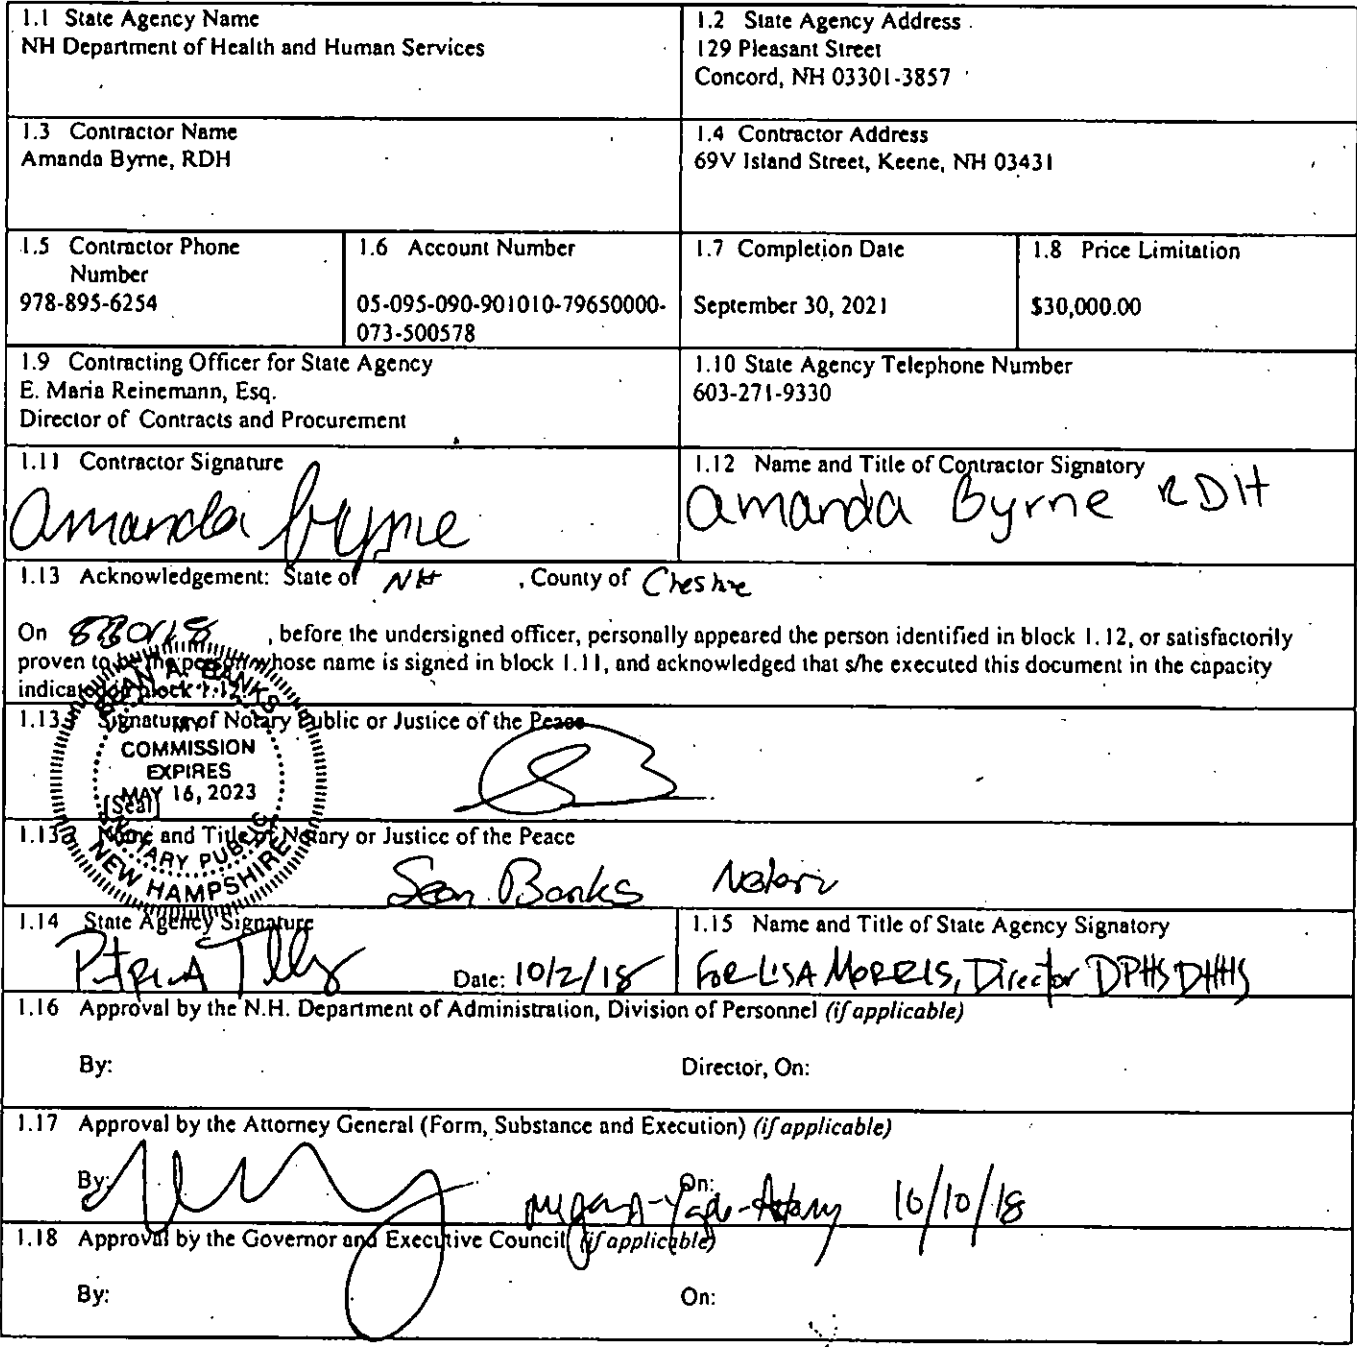 1.1 State Agency Name
NH Department of Health and Human Services
1.2 State Agency Address
129 Pleasant Street
Concord, NH 03301-3857
1.3 Contractor Name
Amanda Byrne, RDH
1.4 Contractor Address
69V Island Street, Keene, NH 03431
1.5 Contractor Phone
Number
978-895-6254
1.6 Account Number
05-095-090-901010-79650000-
073-500578
1.7 Completion Date
September 30, 2021
1.8 Price Limitation
$30,000.00
1.9 Contracting Officer for State Agency
E. Maria Reinemann, Esq.
Director of Contracts and Procurement
1.10 State Agency Telephone Number
603-271-9330
1.11 Contractor Signature
Amanda Byrne
1.12 Name and Title of Contractor Signatory
Amanda Byrne RDH
1.13 Acknowledgement: State of NH , County of Cheshire
On 8/30/18 , before the undersigned officer, personally appeared the person identified in block 1.12, or satisfactorily
proven to be the person whose name is signed in block 1.11, and acknowledged that s/he executed this document in the capacity
indicated in block 1.12.
1.13 Signature of Notary Public or Justice of the Peace
SEAN A. BANKS
MY
COMMISSION
EXPIRES
MAY 16, 2023
[Seal]
NOTARY PUBLIC
NEW HAMPSHIRE
1.13 Name and Title of Notary or Justice of the Peace
Sean Banks Notary
1.14 State Agency Signature
Date: 10/2/18
1.15 Name and Title of State Agency Signatory
For LISA MORRIS, Director DPHS DHHS
1.16 Approval by the N.H. Department of Administration, Division of Personnel (if applicable)
By:
Director, On:
1.17 Approval by the Attorney General (Form, Substance and Execution) (if applicable)
By:
On:
10/10/18
1.18 Approval by the Governor and Executive Council (if applicable)
By:
On: